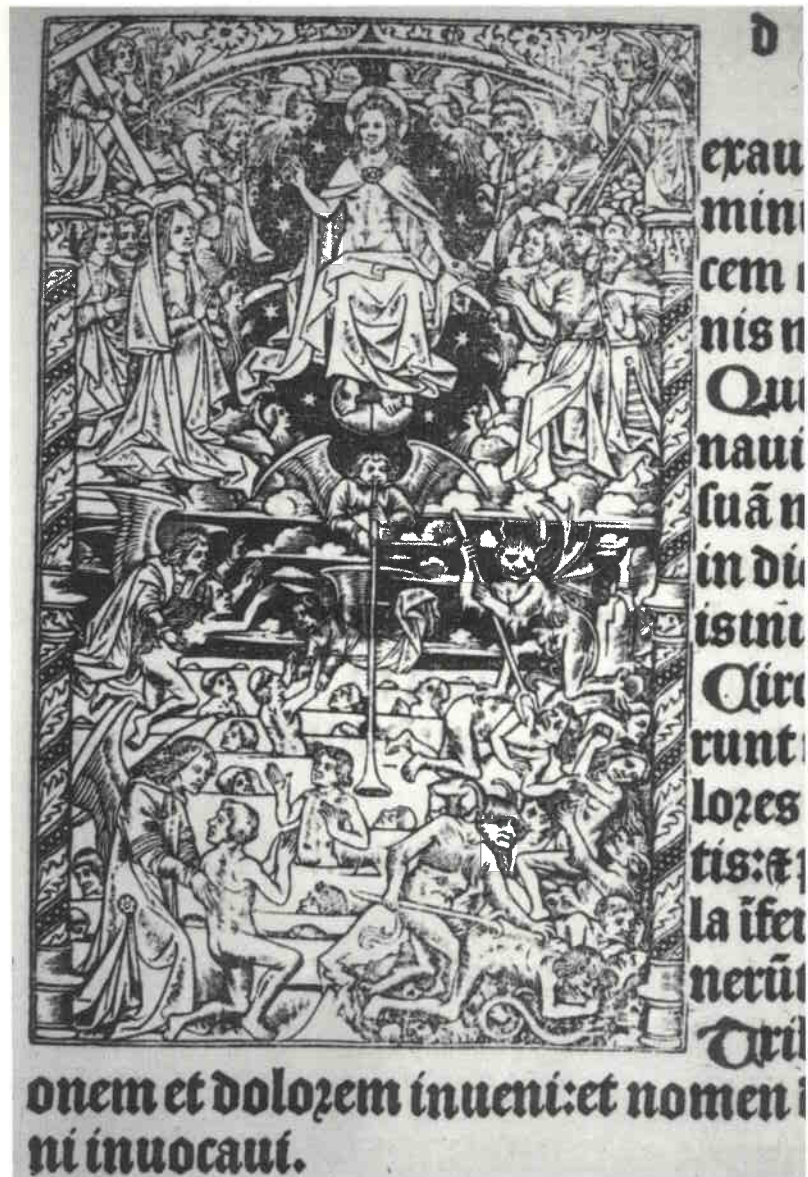 d
exau
min
cem
nis n
Qui
naui
suã n
in di
is mi
Circ
runt
loꝛes
tis: ⁊
la ĩfer
nerũ
Tri
onem et doloꝛem inueni: et nomen
ni inuocaui.